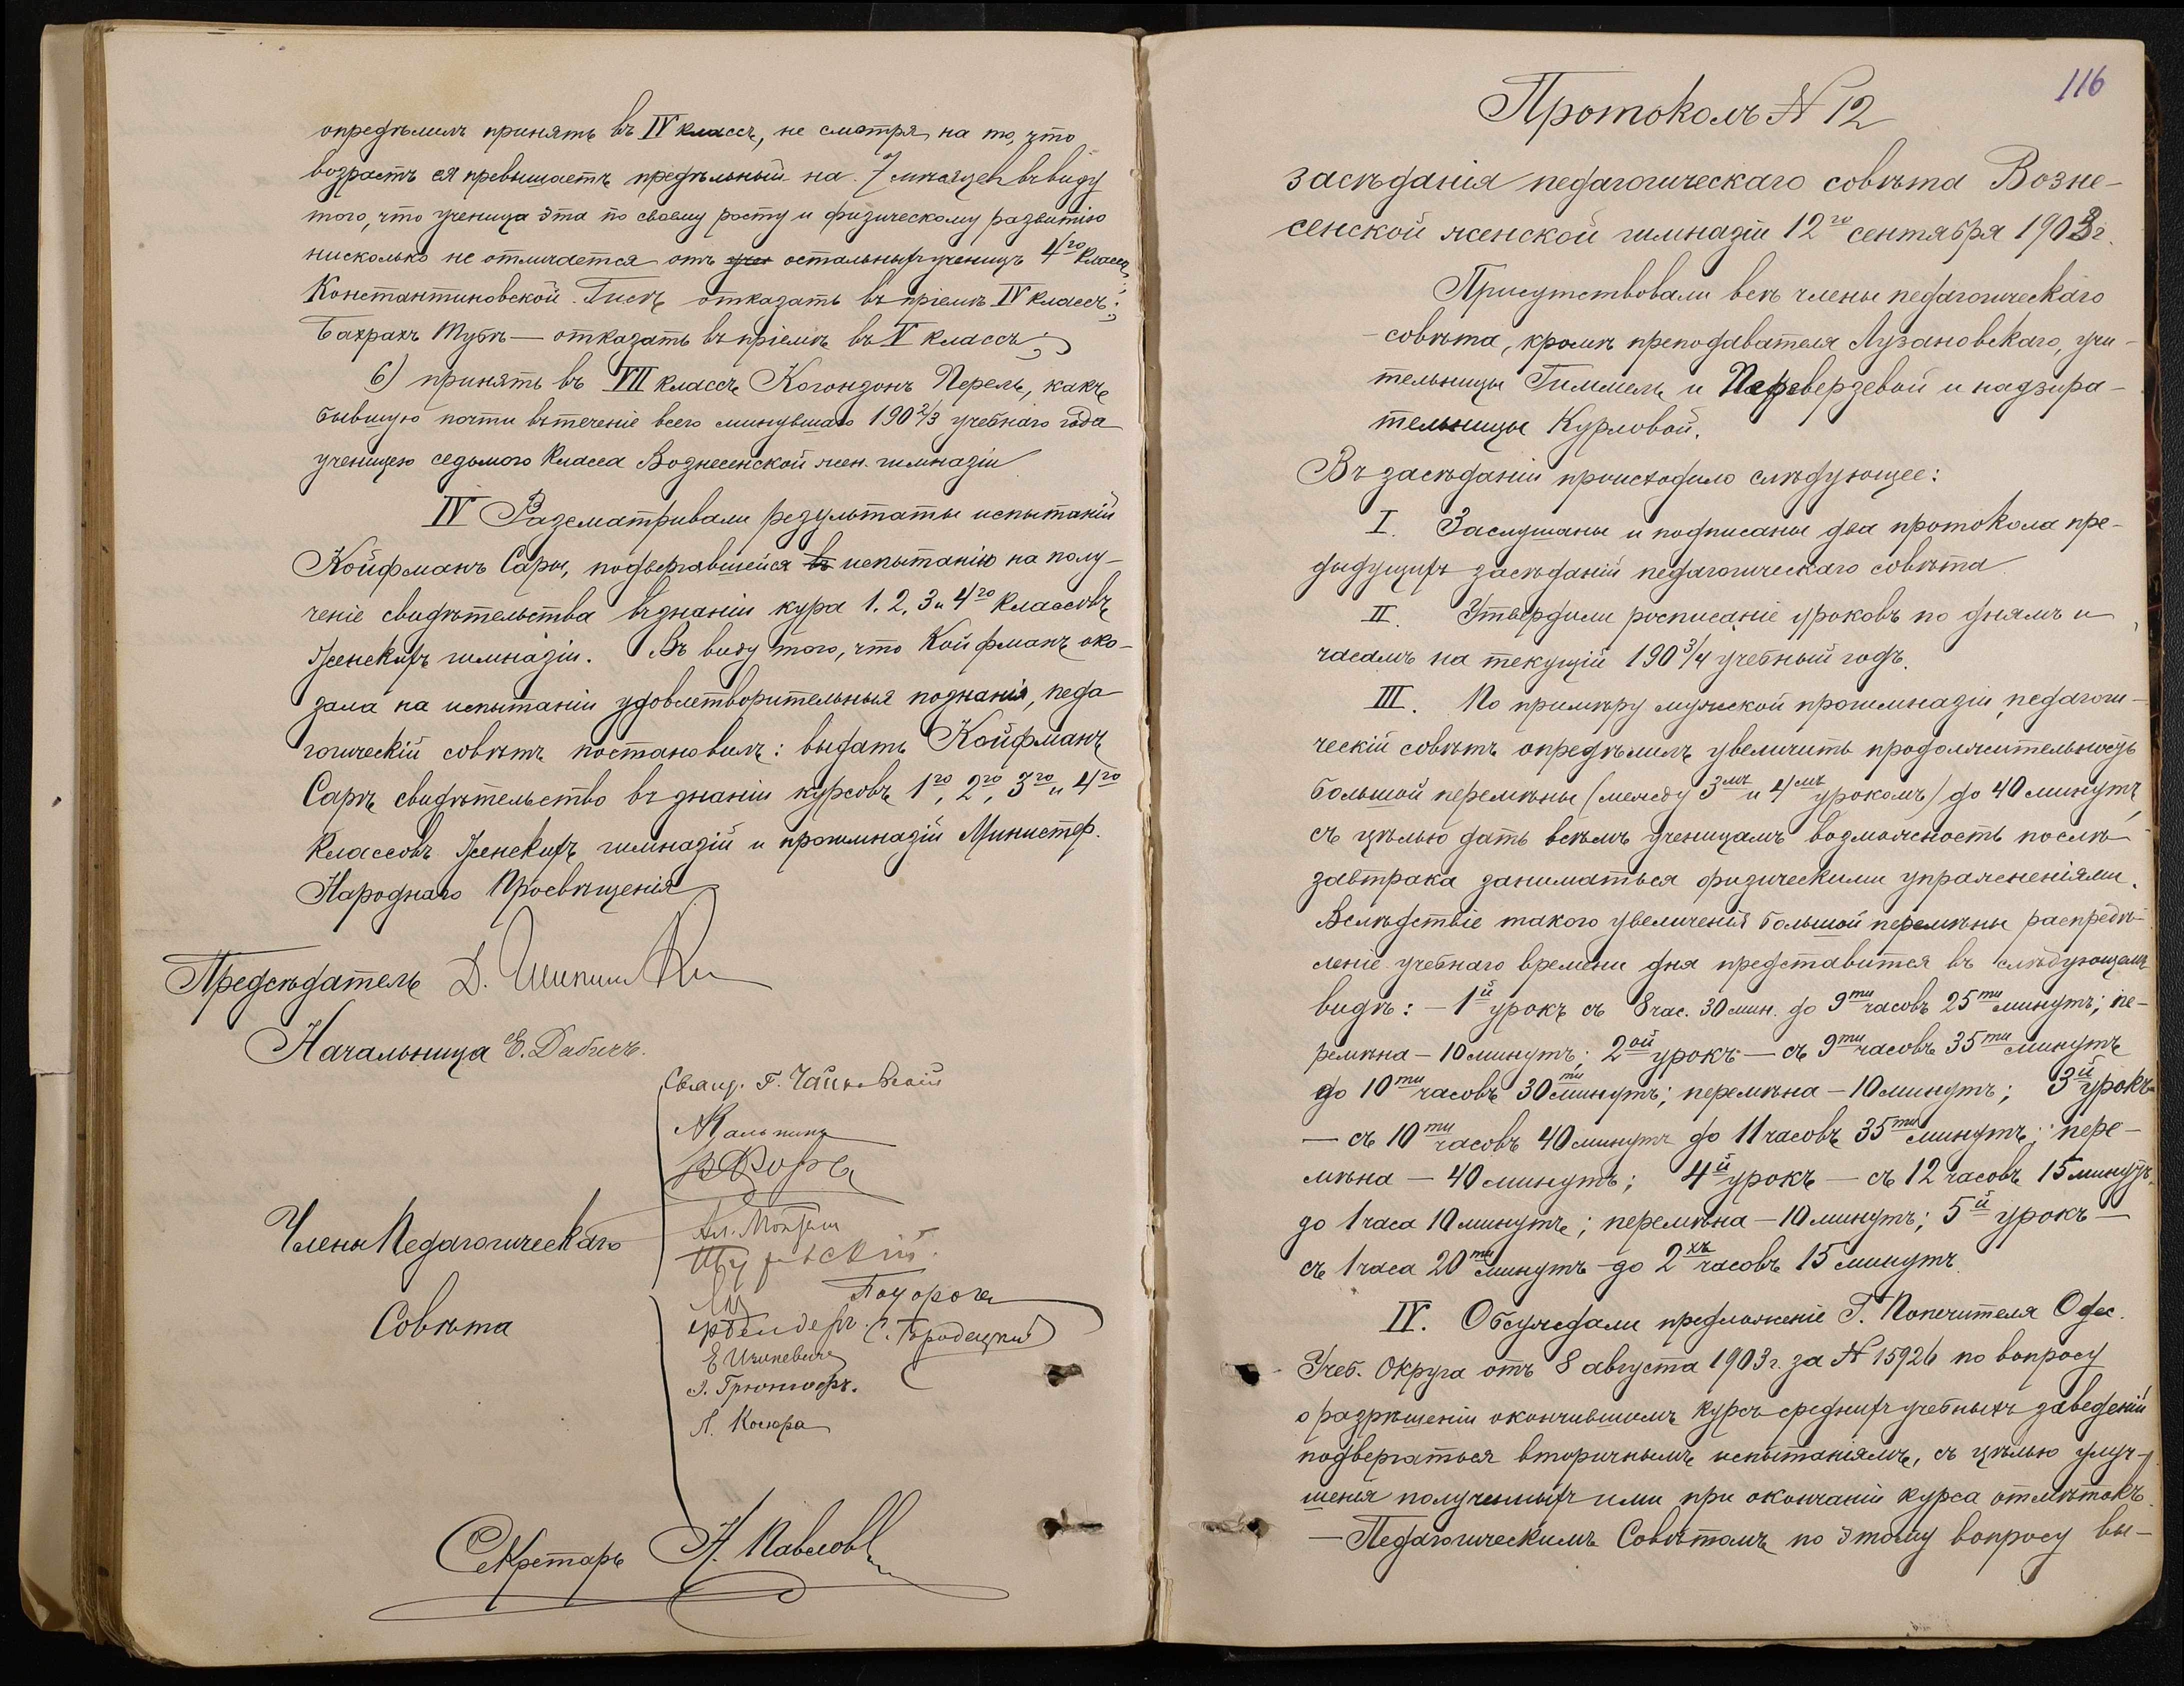 опредѣлилъ принять въ IV классъ, не смотря на то, что
возрастъ ея превышаетъ предѣльный на 7 мѣсяцевъ въ виду
того, что ученица эта по своему росту и физическому развитію
нисколько не отличается отъ остальныхъ ученицъ 4го класса,
Константиновской Гисѣ отказать въ пріемѣ IV классъ;
Бахрахъ Тубѣ — отказать въ пріемѣ въ V классъ;
6) принять въ VII классъ Когондонъ Перель, какъ
бывшую почти въ теченіе всего минувшаго 190 2/3 учебнаго года
ученицею седьмого класса Вознесенской жен. гимназіи
IV Разсматривали результаты испытаній
Койфманъ Сары, подвергавшейся въ испытанію на полу-
ченіе свидѣтельства въ знаніи курса 1, 2, 3 и 4го классовъ
женскихъ гимназіи. Въ виду того, что Койфманъ ока-
зала на испытаніи удовлетворительныя познанія, педа-
гогическій совѣтъ постановилъ: выдать Койфманъ
Сарѣ свидѣтельство въ знаніи курсовъ 1го, 2го, 3го и 4го
классовъ женскихъ гимназій и прогимназій Министер.
Народнаго Просвѣщенія
Предсѣдатель Д.
Начальница Е. Дабичъ.
Свящ. Г. Чайковскій
Члены Педагогическаго
Совѣта
Подорога
С. Бродецкій
Е. Ицкевичъ
Л. Косюра
Секретарь Н. Павлов
116
Протоколъ № 12
засѣданія педагогическаго совѣта Возне-
сенской женской гимназіи 12го сентября 1903 г.
Присутствовали всѣ члены педагогическаго
совѣта, кромѣ преподавателя Лузановскаго, учи-
тельницы Гиммель и Переверзевой и надзира-
тельницы Курловой.
Въ засѣданіи происходило слѣдующее:
I. Заслушаны и подписаны два протокола пре-
дыдущихъ засѣданій педагогическаго совѣта
II. Утвердили росписаніе уроковъ по днямъ и
часамъ на текущій 190 3/4 учебный годъ.
III. По примѣру мужской прогимназіи, педагоги-
ческій совѣтъ опредѣлилъ увеличить продолжительность
большой перемѣны (между 3мъ и 4мъ урокомъ) до 40 минутъ,
съ цѣлью дать всѣмъ ученицамъ возможность послѣ
завтрака заниматься физическими упражненіями.
Вслѣдствіе такого увеличенія большой перемѣны распредѣ-
леніе учебнаго времени дня представится въ слѣдующемъ
видѣ: — 1й урокъ съ 8 час. 30 мин. до 9ти часовъ 25ти минутъ; пе-
ремѣна — 10 минутъ; 2ой урокъ — съ 9ти часовъ 35ти минутъ
до 10ти часовъ 30ти минутъ; перемѣна — 10 минутъ; 3й урокъ
— съ 10ти часовъ 40 минутъ до 11 часовъ 35ти минутъ; пере-
мѣна — 40 минутъ; 4й урокъ — съ 12 часовъ 15 минутъ
до 1 часа 10 минутъ; перемѣна — 10 минутъ; 5й урокъ —
съ 1 часа 20ти минутъ до 2хъ часовъ 15 минутъ.
IV. Обсуждали предложеніе Г. Попечителя Одес.
Учеб. Округа отъ 8 августа 1903 г. за № 15926 по вопросу
о разрѣшеніи окончившимъ курсъ среднихъ учебныхъ заведеній
подвергаться вторичнымъ испытаніямъ, съ цѣлью улуч-
шенія получимыхъ ими при окончаніи курса отмѣтокъ.
— Педагогическимъ Совѣтомъ по этому вопросу вы-